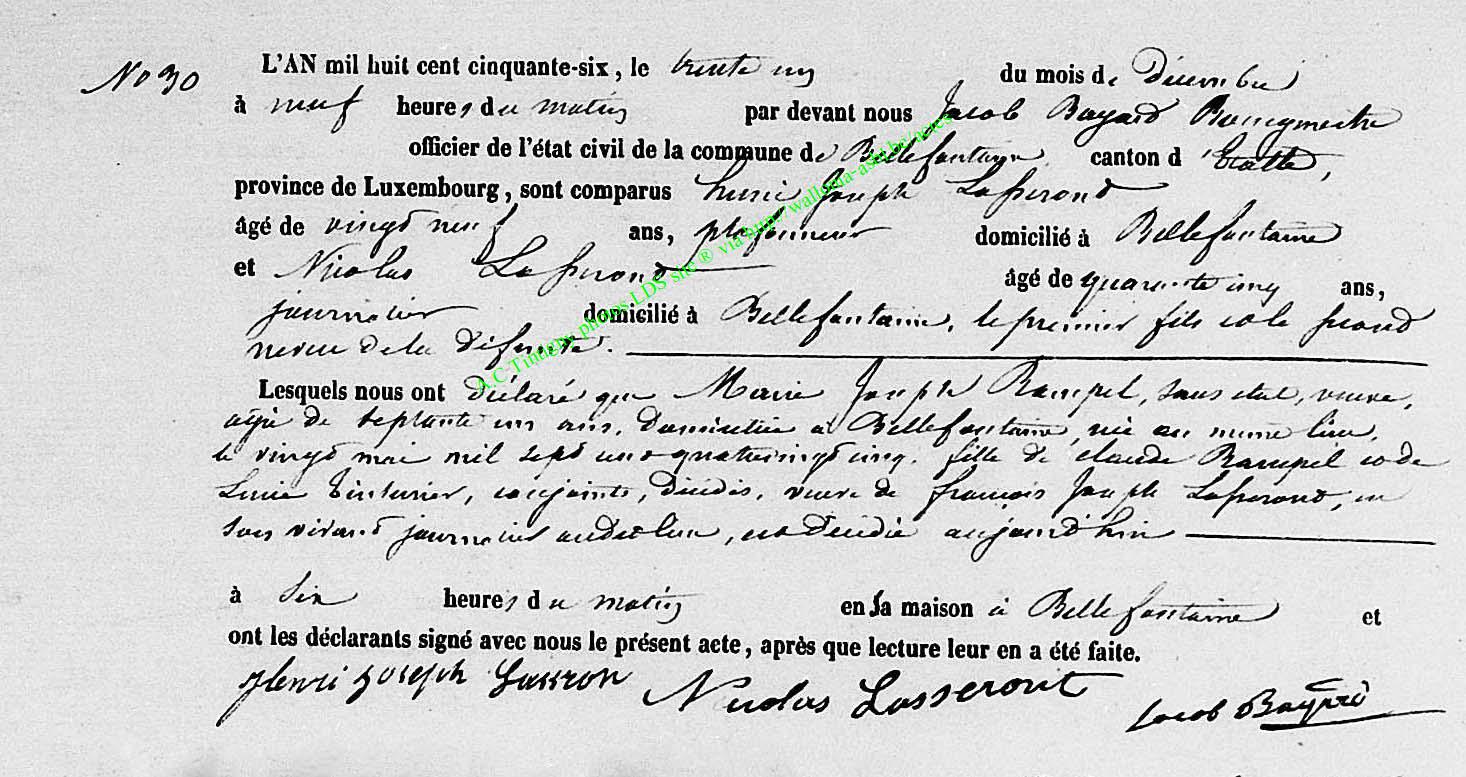 No 30
L'AN mil huit cent cinquante-six, le trente un du mois de Décembre
à neuf heures du matin par devant nous Jacob Bayard Bourgmestre
officier de l'état civil de la commune de Bellefontaine canton d'Etalle,
province de Luxembourg, sont comparus henri Joseph Lasserond
âgé de vingt neuf ans, plafonneur domicilié à Bellefontaine
et Nicolas Lasserond âgé de quarante cinq ans,
journalier domicilié à Bellefontaine, le premier fils et le second
neveu de la défunte.
Lesquels nous ont déclaré que Marie Joseph Rampel, sans état, veuve,
agée de septante un ans, domiciliée à Bellefontaine, née au même lieu,
le vingt mai mil sept cent quatrevingt cinq. fille de claude Rampel et de
Lucie Tinturier, conjoints, décédés, veuve de françois Joseph Lasserond, en
son vivant journalier audit lieu, est décédée aujourd'hui
à six heures du matin en sa maison à Bellefontaine et
ont les déclarants signé avec nous le présent acte, après que lecture leur en a été faite.
Henri Joseph Lasseron Nicolas Lasseront Jacob Bayard
A.C Tintigny photos LDS site ® via http/ wallonia-asbl.be/actes